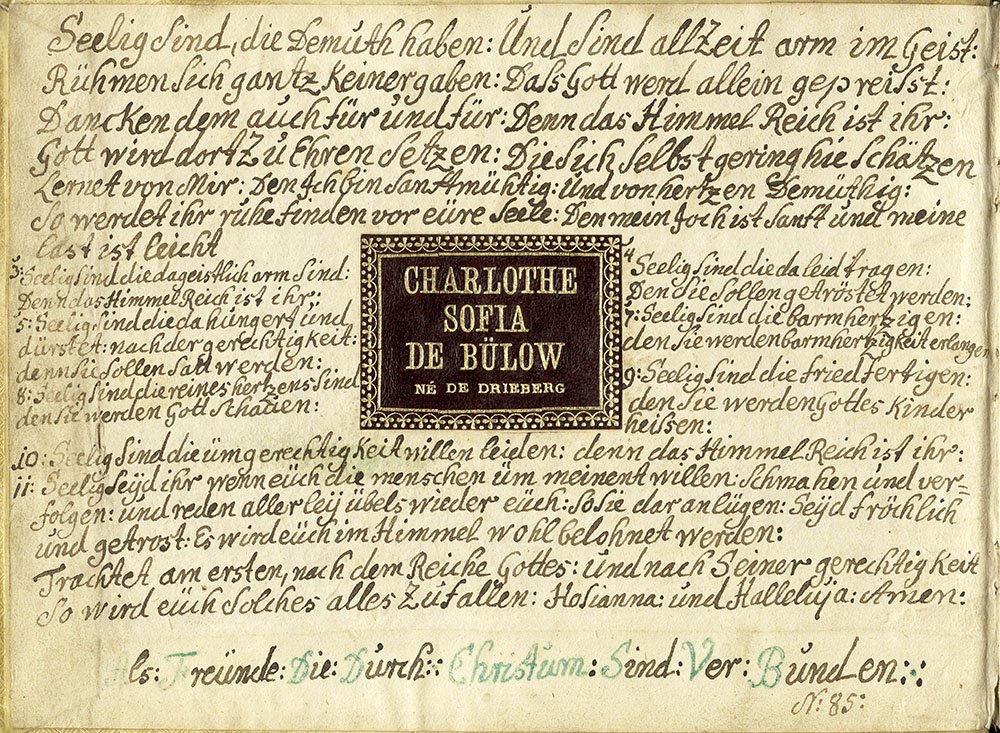 Seelig sind, die Demuth haben: Und sind allzeit arm im Geist:
Rühmen sich gantz keiner gaben: Dass Gott werd allein gepreisst:
Dancken dem auch für und für: Denn das Himmel Reich ist ihr:
Gott wird dort Zu Ehren Setzen: Die sich selbst gering hie schätzen
Lernet von Mir: Den Ich bin sanfftmühtig: Und von hertzen Demüthig:
So werdet ihr ruhe finden vor eüre Seele: Den mein Joch ist sanft und meine
last ist leicht
3: Seelig sind die da geistlich arm sind:
Denn das Himmel Reich ist ihr:
5: Seelig sind die da hüngert und
dürstet: nach der gerechtigkeit:
denn sie sollen satt werden:
8: Seelig sind die reines hertzens sind
den sie werden Gott schauen:
CHARLOTHE
SOFIA
DE BÜLOW
NÉ DE DRIEBERG
4 Seelig sind die da leid tragen:
Den sie sollen getröstet werden:
7: Seelig sind die barmhertzigen:
den sie werden barmhertzigkeit erlangen
9: Seelig sind die friedfertigen:
den sie werden Gottes Kinder
heissen:
10: Seelig sind die üm gerechtigkeit willen leiden: denn das Himmel Reich ist ihr:
11: Seelig seÿd ihr wenn eüch die menschen üm meinent willen schmahen und ver=
folgen: und reden allerleÿ übels wieder eüch: So sie daran lügen: Seÿd fröehlich
und getrost: Es wird eüch im Himmel wohl belohnet werden:
Trachtet am ersten, nach dem Reiche Gottes: und nach Seiner gerechtigkeit
So wird eüch solches alles Zufallen: Hosianna: und Halleluja: Amen:
Als: Freünde: Die: Durch:: Christum: Sind: Ver: Bunden::
N: 85: